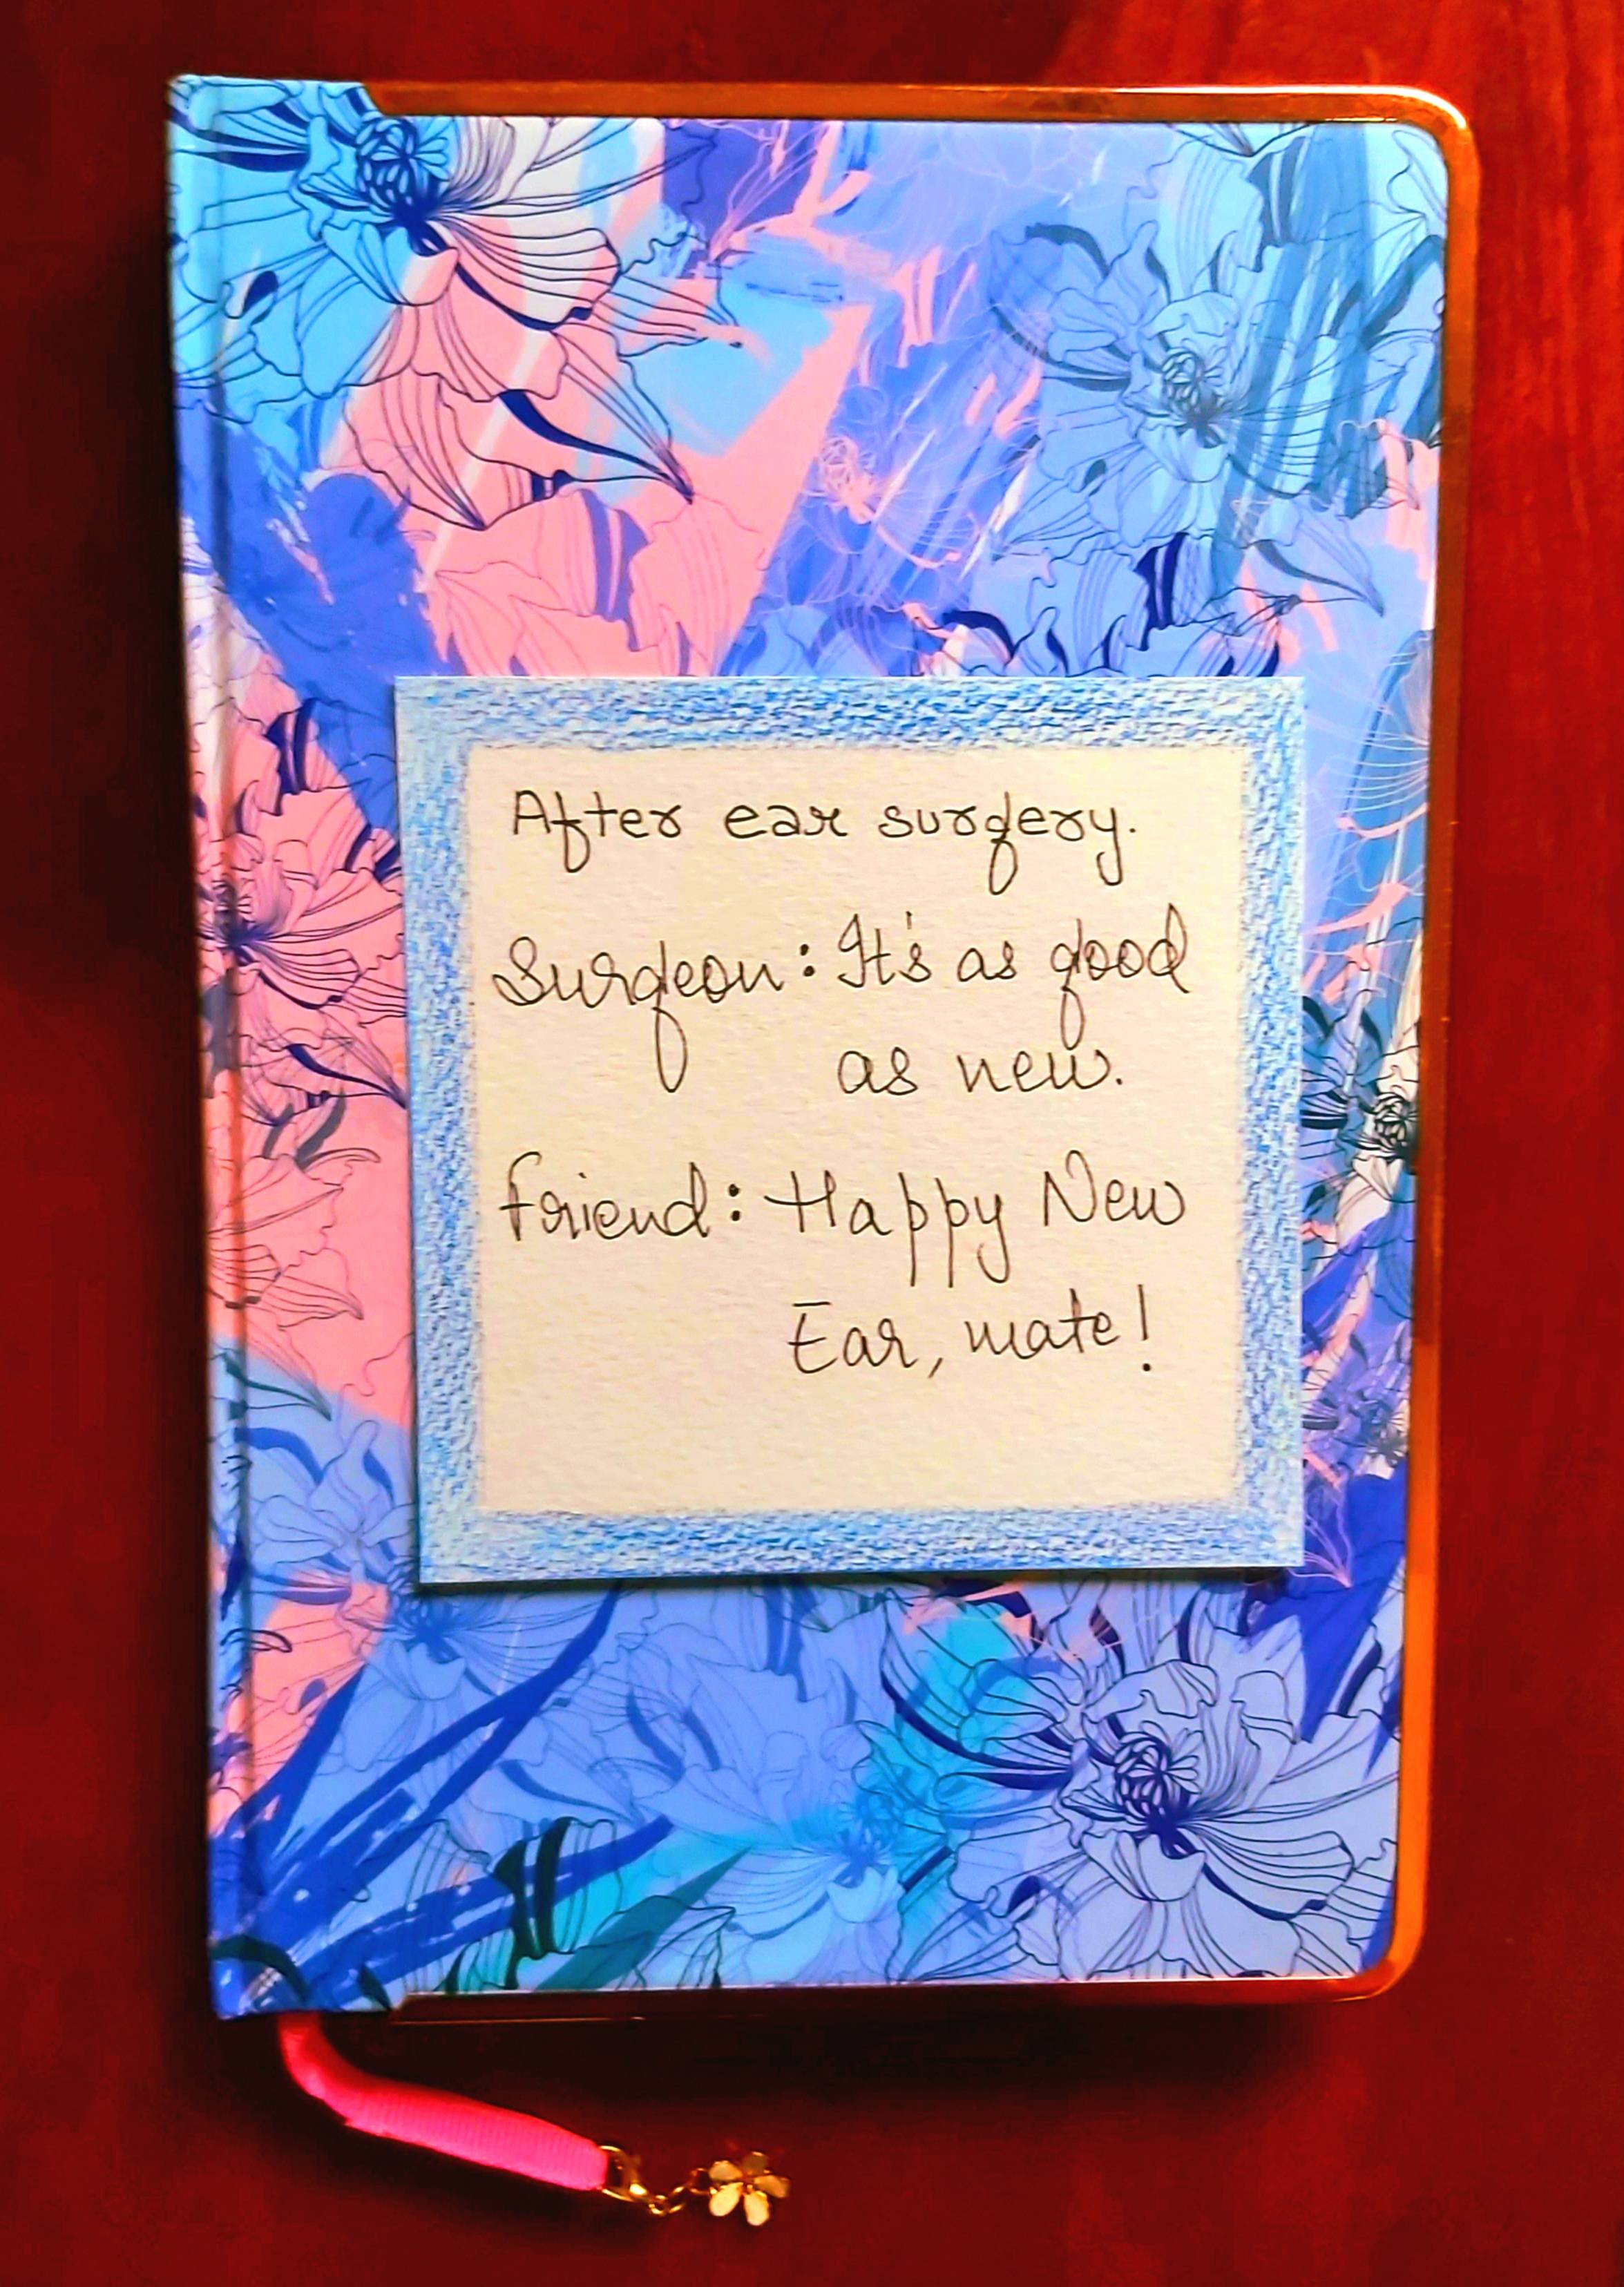 After ear surgery.
Surgeon: It's as good
as new.
Friend: Happy New
Ear, mate!